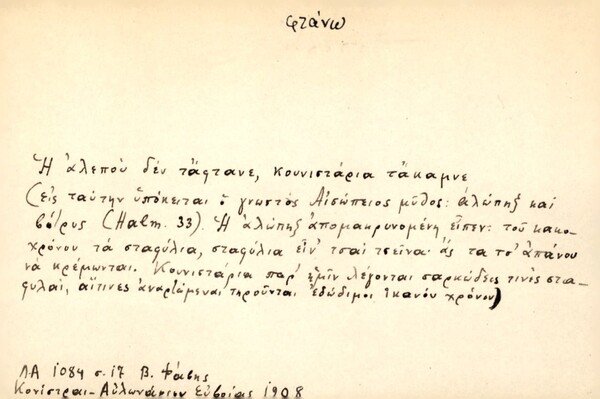 φτάνω
Ἡ ἀλεποῦ δέν τἄφτανε, κουνιστάρια τἄκαμνε
(εἰς ταύτην ὑπόκειται ὁ γνωστὸς Αἰσώπειος μῦθος: ἀλώπηξ καὶ
βότρυς (Halm. 33). Ἡ ἀλώπηξ ἀπομακρυνομένη εἶπεν: τοῦ κακο-
χρόνου τά σταφύλια, σταφύλια εἶν' τσαί τσεῖνα· ἄς τα τσ' ἀπάνου
νὰ κρέμωνται. Κουνιστάρια παρ' ἡμῖν λέγονται σαρκώδεις τινὲς στα-
φυλαί, αἵτινες ἀναρτώμεναι τηροῦνται ἐδώδιμοι ἱκανόν χρόνον)
ΛΑ 1084 σ. 17 Β. Φάβης
Κονίστραι - Αὐλωνάριον Εὐβοίας 1908